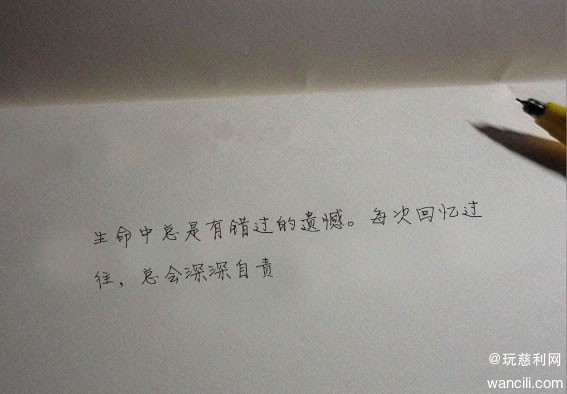 生命中总是有错过的遗憾。每次回忆过
往，总会深深自责
@玩慈利网
wancili.com